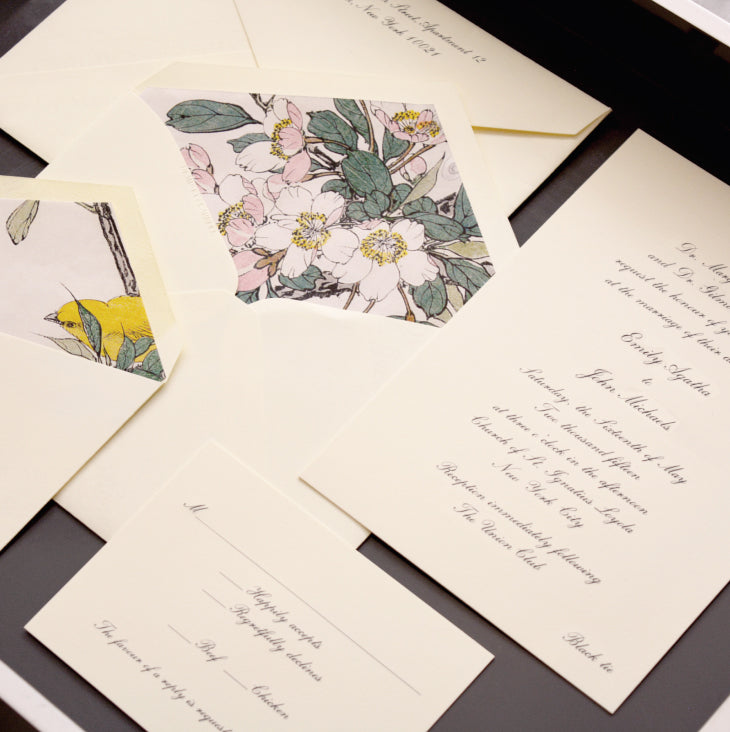 Street, Apartment 12
New York 10021
Dr. Mary
and Dr. Gilm
request the honour of y
at the marriage of their d
Emily Agatha
to
John Michaels
Saturday, the Sixteenth of May
Two thousand fifteen
at three o'clock in the afternoon
Church of St. Ignatius Loyola
New York City
Reception immediately following
The Union Club
Black tie
M
Happily accepts
Regretfully declines
Beef Chicken
The favour of a reply is request